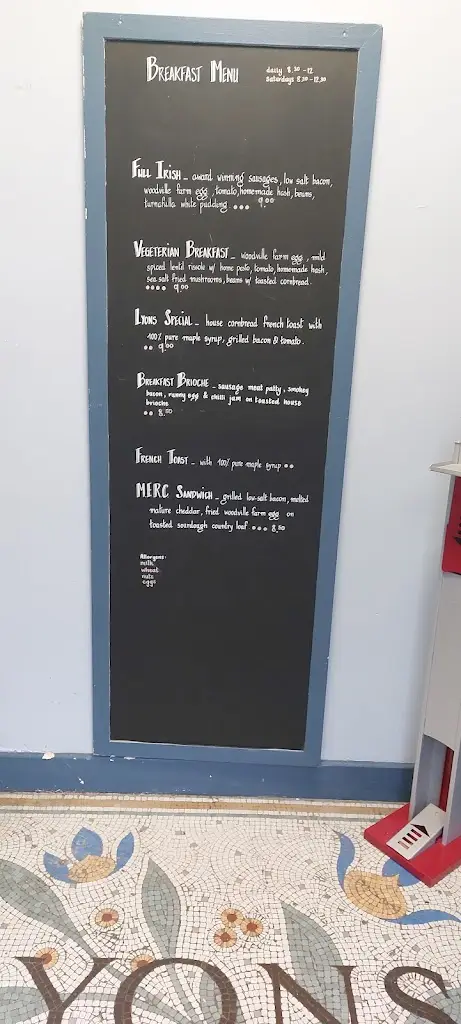 BREAKFAST MENU
daily 8.30 -12
saturdays 8.30 -12.30
FULL IRISH - award winning sausages, low salt bacon,
woodville farm egg, tomato, homemade hash, beans,
turnafulla white pudding. 9.00
VEGETERIAN BREAKFAST - woodville farm egg, mild
spiced lentil rissole w/ home pesto, tomato, homemade hash,
sea salt fried mushrooms, beans w/ toasted cornbread.
9.00
LYONS SPECIAL - house cornbread french toast with
100% pure maple syrup, grilled bacon & tomato.
9.00
BREAKFAST BRIOCHE - sausage meat patty, smokey
bacon, runny egg & chilli jam on toasted house
brioche
8.50
FRENCH TOAST - with 100% pure maple syrup
MERC SANDWICH - grilled low-salt bacon, melted
mature cheddar, fried woodville farm egg on
toasted sourdough country loaf 8.50
Allergens:
milk
wheat
nuts
eggs
YONS